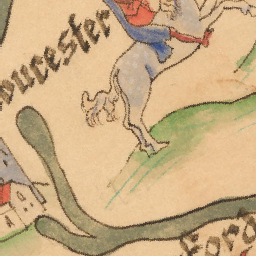 oucester
ford